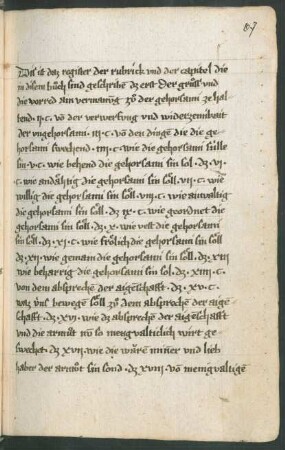 87
Diß ist daz register der rubrick vnd der capitol die
in disem bůch sint geschriben dz erst der grůß vnd
die vorred ain vermanūg zů der gehorsami ze hal
tend · ij · c · vō der verwerfūg vnd widerzemikait
der vngehorsami · iij · c · vō den dingē die die ge-
horsami swechend · iiij · c · wie die gehorsami fúlle
sin · v · c · wie behend die gehorsami sin sol · dz · vi ·
c · wie andåhtig die gehorsami sin sóll · vii · c · wie
willig die gehorsami sin sóll · viii · c · wie
die gehorsami sin sóll · dz · ix · c · wie geordnet die
gehorsami sin sóll · dz · x · wie vest die gehorsami
sin sóll · dz · xi · c · wie frólich die gehorsami sin sóll
dz · xii · wie gemain die gehorsami sin sóll · dz · xiii
wie beharrig die gehorsami sin sol · dz · xiiii · c ·
von dem absprechē der aigenschafft · dz · xv · c ·
waz vnß bewegē sóll zů dem absprechē der aigē
schafft · dz · xvi · wie dz absprechē der aigēschafft
vnd die armůt nū so menigualticlich wirt ge-
swechet · dz xvii · wie die wåren miner vnd lieb
haber der armůt sin sond · dz · xviii · vō menigualtigē